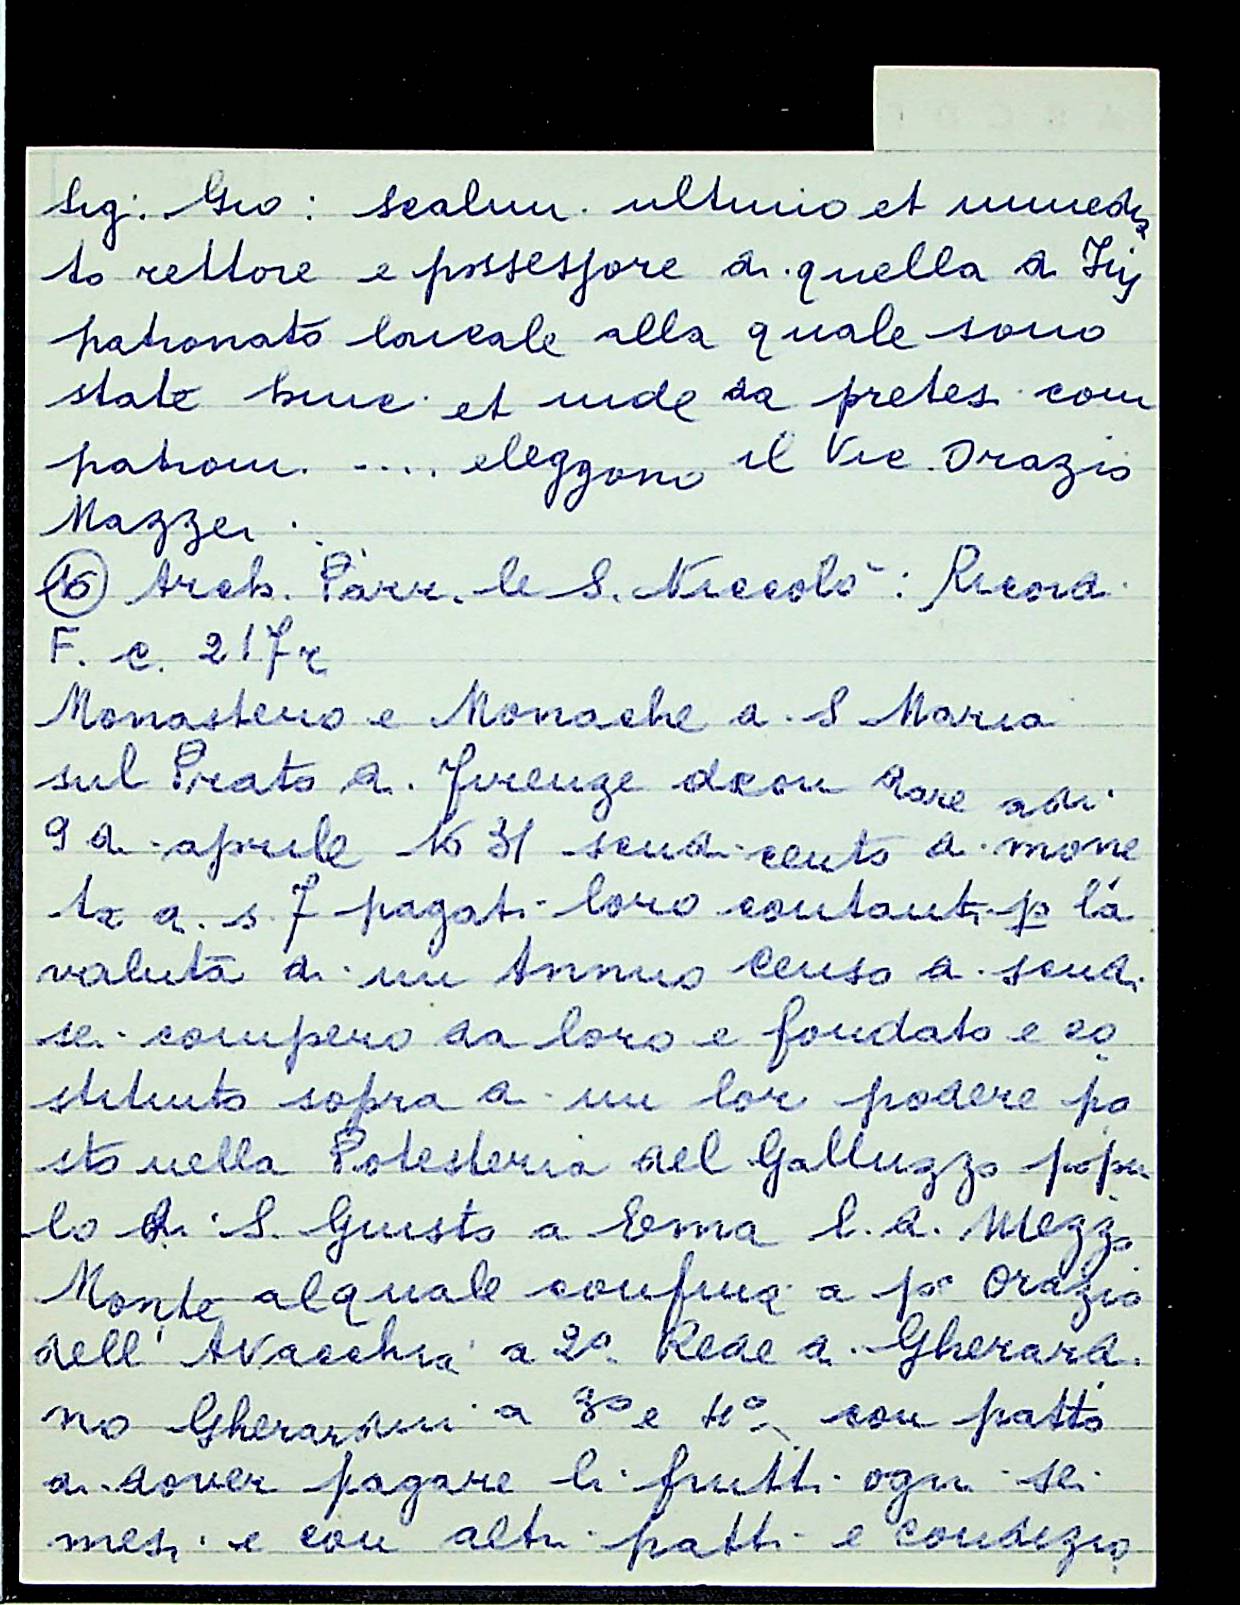 Sig: Gio: scalini. ultimo et immedia
to rettore e possessore di quella di Jus
patronato laicale alla quale sono
state hinc et inde da pretes. com
patroni. .... eleggono il Vic. Orazio
Mazzei.
(16) Arch. Parr. le S. Niccolò: Ricord.
F. c. 217r
Monastero e Monache di S Maria
sul Prato di Firenze deon dare adi
9 di aprile 1631 scudi cento di mone
ta di s 7 pagati loro contanti p la
valuta di un Annuo Censo di scudi
sei compero da loro e fondato e co
stituito sopra di un lor podere po
sto nella Potesteria del Galluzzo popu
lo di S. Giusto a Ema l. d. Mezzo
Monte al quale confina a po Orazio
dell' AVacchia a 2o. Rede di Gherardi
no Gherardini a 3o e 4o con patto
di dover pagare li frutti ogni sei
mesi e con altri patti e condizio